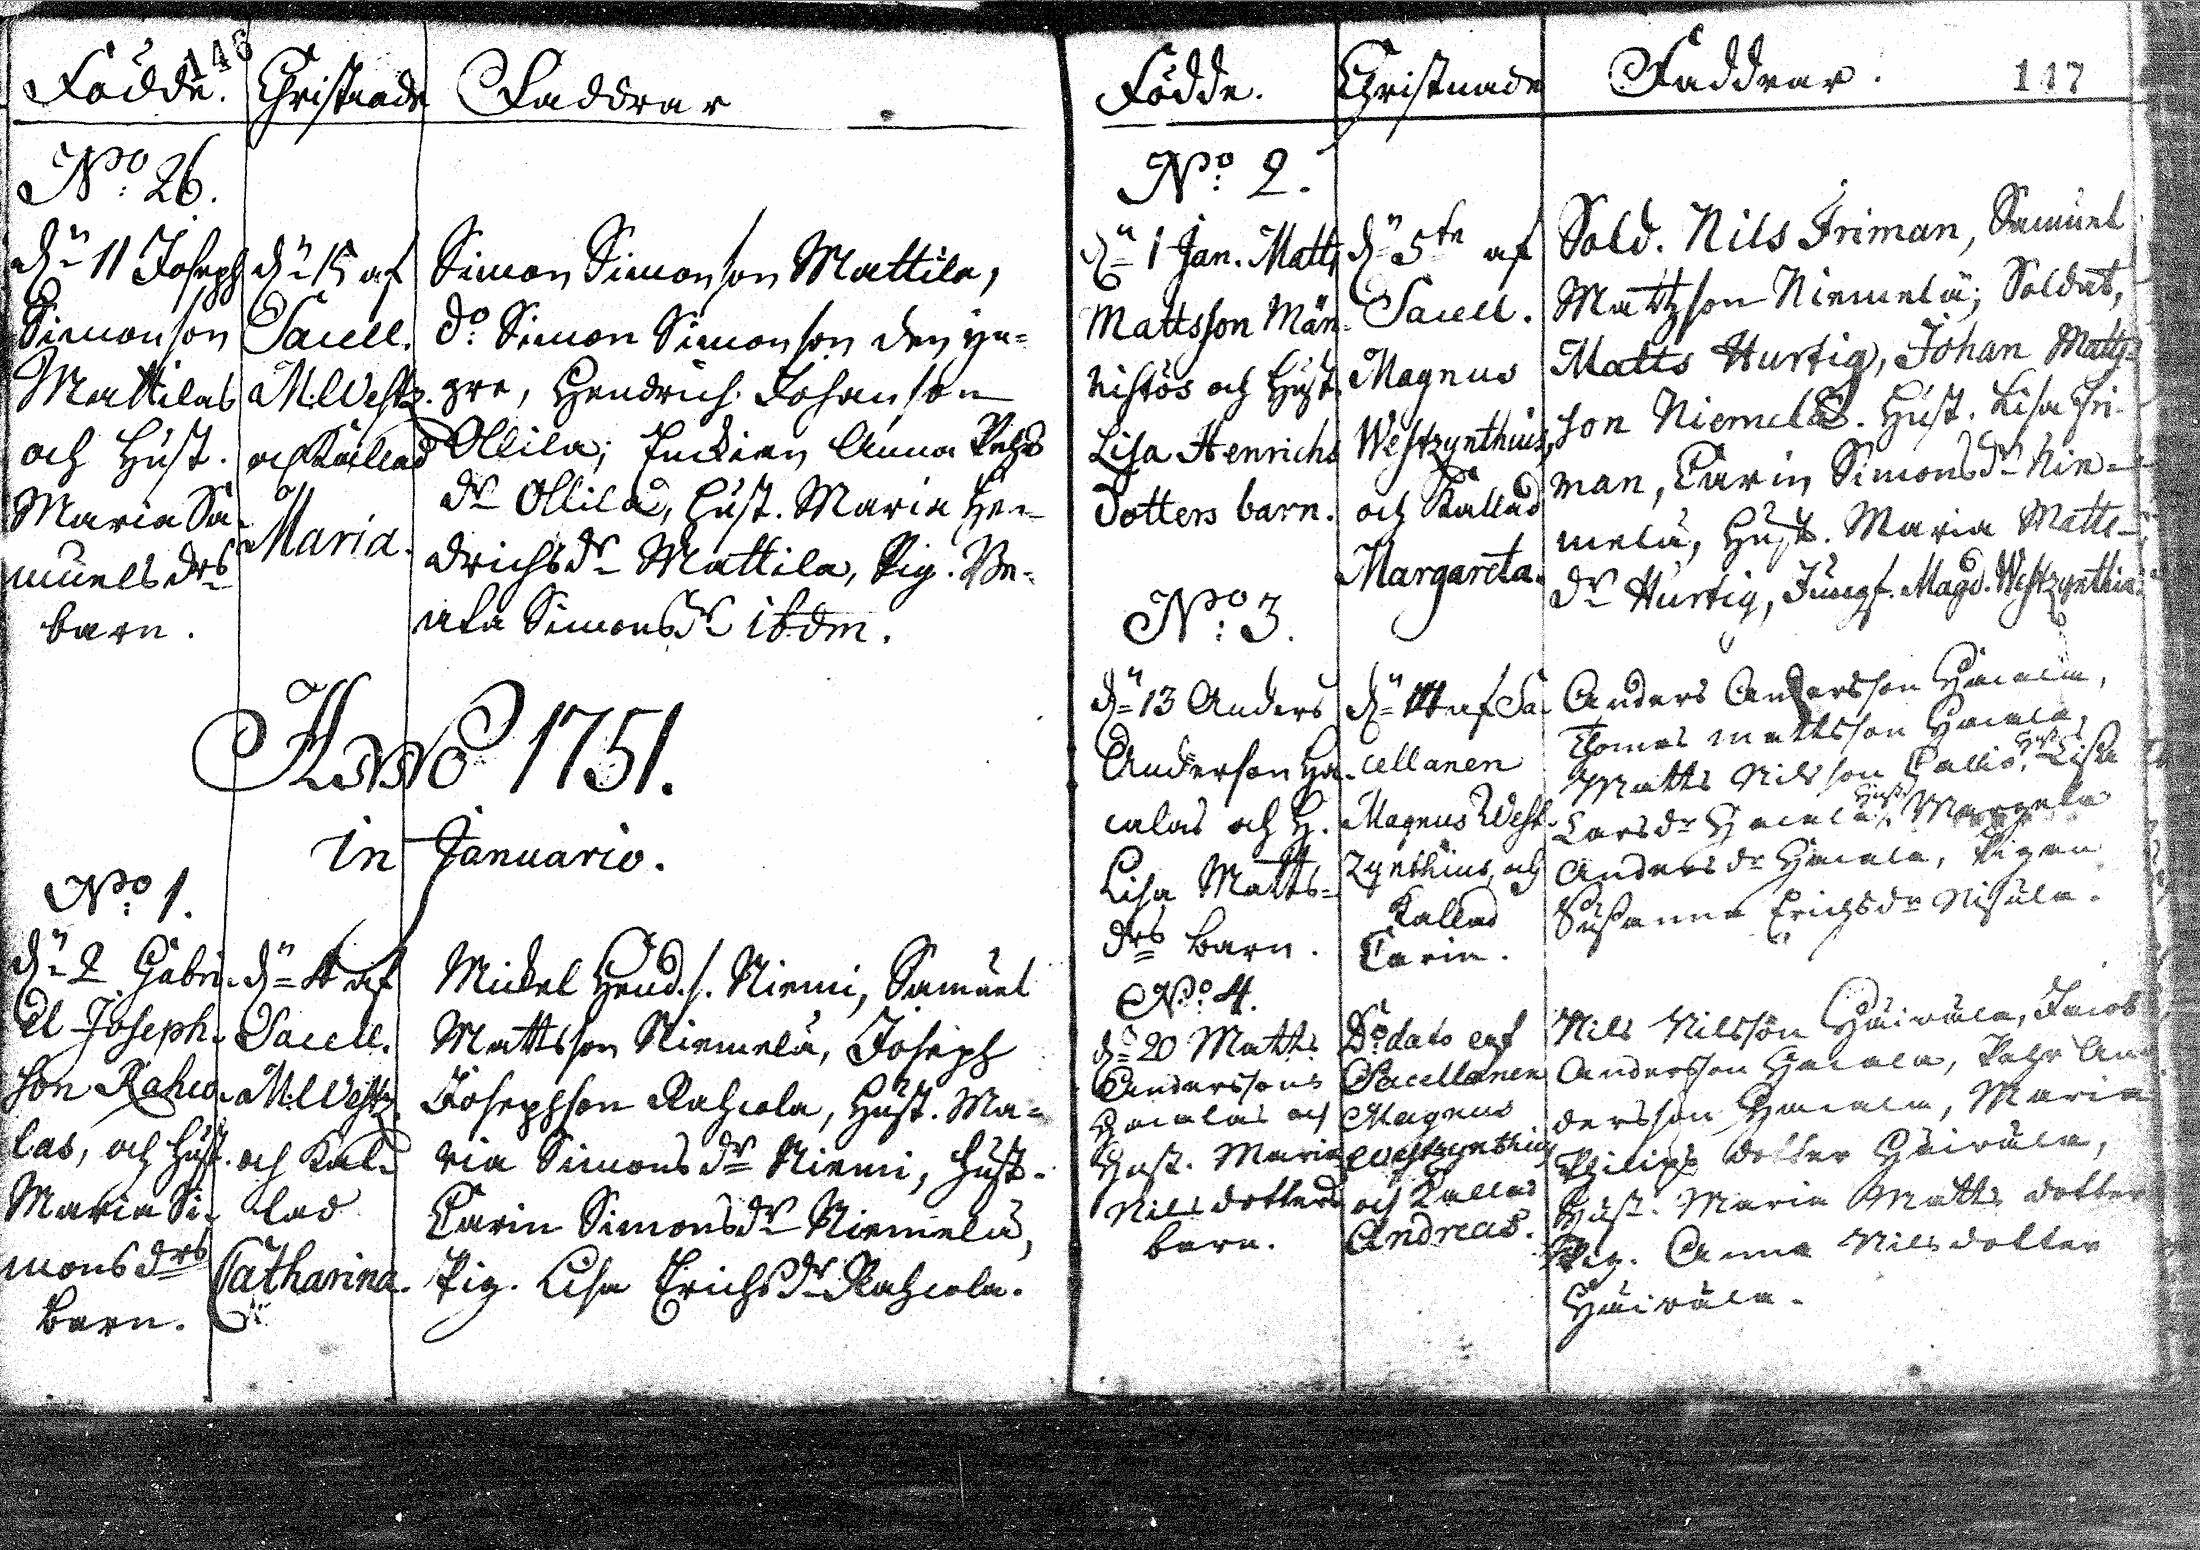 146
Födde. Christnade Faddrar
No: 26.
dn 11 Joseph
Simonson
Mattilas
och Hust.
Maria Sa-
muels drs
barn.
dn 15 af
Sacell.
M. Westz.
och Kallad
Maria.
Simon Simonson Mattila,
do Simon Simonson den yn-
gre, Hendrich Johanson
Ollila; Enckian Anna Pehrs
dr Ollila, Hust. Maria Hen-
drichs dr Mattila, Pig. Be-
ata Simons dr ibdm.
Anno 1751.
in Januario.
No: 1.
dn 2 Gabri-
el Joseph-
son Rahco-
las, och Hust.
Maria Si-
mons drs
barn.
dn 4 af
Sacell.
M. Westz.
och Kal-
lad
Catharina.
Mickel Hend.s. Niemi, Samuel
Mattsson Niemelä, Joseph
Josephson Rahcola, Hust. Ma-
ria Simons dr Niemi, Hust.
Carin Simonsdr Niemelä,
Pig. Lisa Erichs dr Rahcola.
Födde. Christnade Faddrar. 147
No: 2.
dn 1 Jan. Matts
Mattsson Män-
nistös och Hust.
Lisa Henrichs
Dotters barn.
dn 5te af
Sacell.
Magnus
Westzynthius,
och Kallad
Margareta.
Sold. Nils Friman, Samuel
Mattzson Niemelä; Soldat,
Matts Hurtig, Johan Matts-
son Niemelä. Hust. Lisa Fri-
man, Carin Simonsdr Nie-
melä, Hust. Maria Matts-
dr Hurtig, Jungf. Magd. Westzynthia.
No: 3.
dn 13 Anders
Anderson Ha-
calas och H.
Lisa Matts-
drs barn.
dn 14 af Sa-
cellanen
Magnus West-
zynthius, och
Kallad
Carin.
Anders Andersson Hacala,
Thomas Mattsson Hacala,
Matts Nilsson Callio, Hust. Lisa
Larsdr Hacala, Hust. Margeta
Andersdr Hacala, Pigan
Susanna Erichsdr Nisula.
No: 4.
dn 20 Matts
Anderssons
Hacalas och
Hust. Maria
Nils dotters
barn.
Do dato af
Sacellanen
Magnus
Westzynthius
och Kallad
Andreas.
Nils Nilsson Häiwäla, Jacob
Andersson Hacala, Pehr An-
dersson Hacala, Maria
Philips dotter Häiwäla,
Hust. Maria Matts dotter
Pig. Anna Nils dotter
Häiwäla.